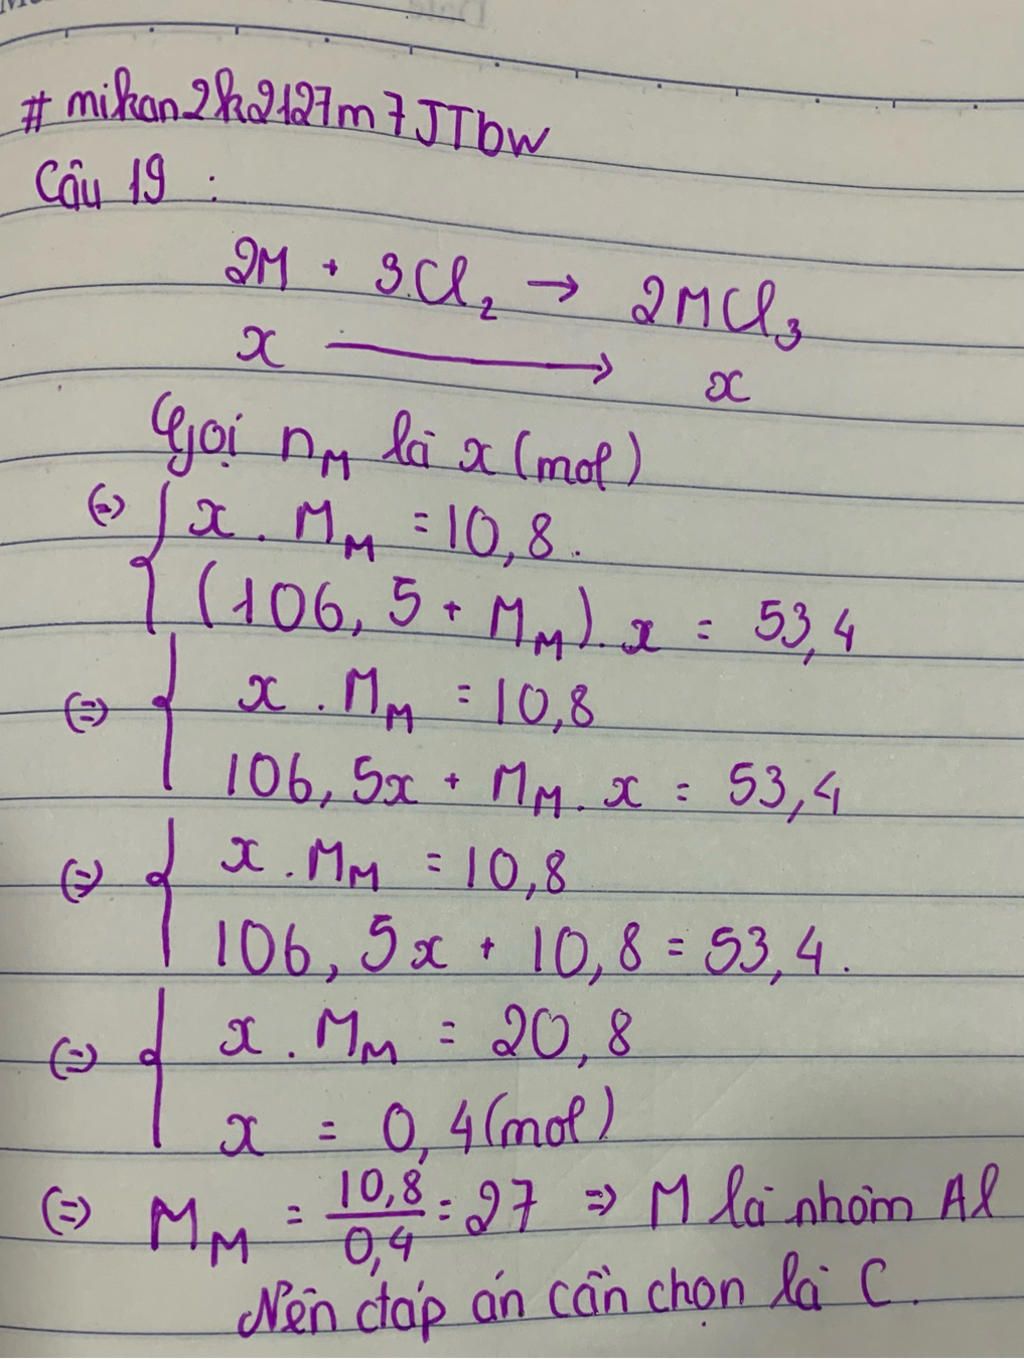 # mikan2k2127m7JTbw
Câu 19 :
2M + 3Cl₂ → 2MCl₃
x ⟶ x
Gọi nM là x (mol)
(=) { x . MM = 10,8.
(106,5 + MM). x = 53,4
(=) { x . MM = 10,8
106,5x + MM. x = 53,4
(=) { x . MM = 10,8
106,5x + 10,8 = 53,4.
(=) { x . MM = 20,8
x = 0,4 (mol)
(=) MM = 10,8/0,4 = 27 => M là nhôm Al
Nên đáp án cần chọn là C.